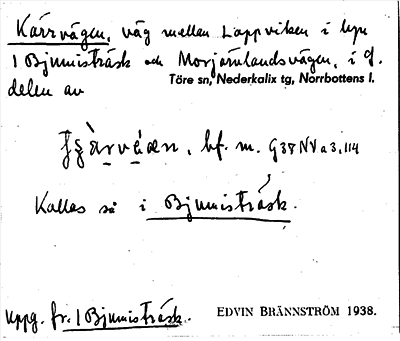 Kärrvägen, väg mellan Lappviken i byn
1 Bjumisträsk och Morjärnlandsvägen, i g.
Töre sn, Nederkalix tg, Norrbottens l.
delen av
bf. m. G 38 NV a 3, 114
Kallas så i Bjumisträsk.
Uppg. fr. 1 Bjumisträsk.
EDVIN BRÄNNSTRÖM 1938.